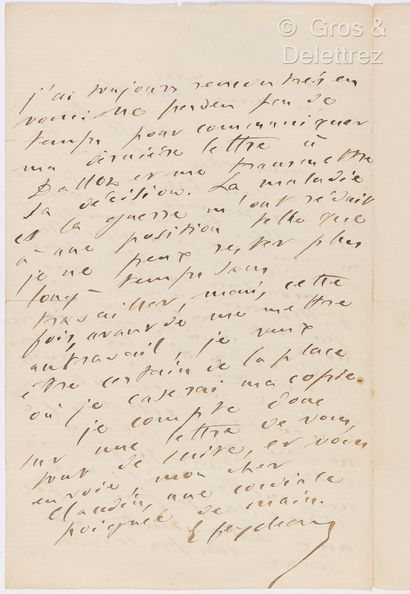 © Gros &
Delettrez
j'ai toujours rencontrés en
vous. Ne perdez pas de
temps pour communiquer
ma dernière lettre à
Dalloz et me transmettre
sa décision. La maladie
et la guerre m'ont réduit
à une position telle que
je ne peux rester plus
long-temps sans
travailler, mais, cette
fois, avant de me mettre
au travail je veux
être certain de la place
où je caserai ma copie.
je compte donc
sur une lettre de vous,
tout de suite, et vous
envoie, mon cher
Claudin, une cordiale
poignée de main.
E Feydeau